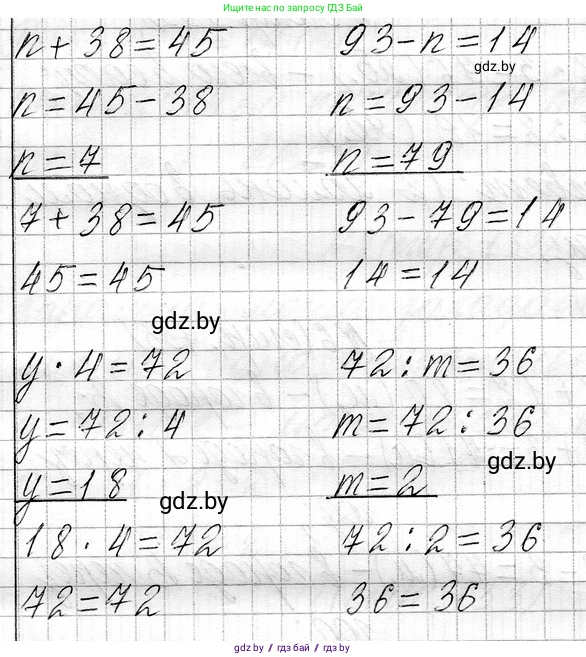 Нашли по запросу ГДЗ Бай
n + 38 = 45
n = 45 - 38
n = 7
7 + 38 = 45
45 = 45
93 - n = 14
gdz.by
n = 93 - 14
n = 79
93 - 79 = 14
14 = 14
gdz.by
y · 4 = 72
y = 72 : 4
y = 18
gdz.by
18 · 4 = 72
72 = 72
72 : m = 36
m = 72 : 36
gdz.by
m = 2
72 : 2 = 36
36 = 36
gdz.by / гдз бай / gdz.by